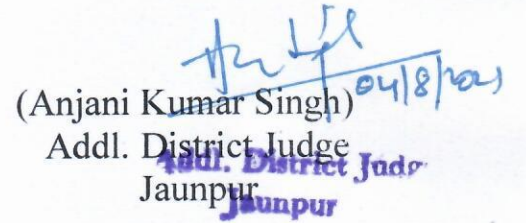 04/8/2021
(Anjani Kumar Singh)
Addl. District Judge
Addl. District Judge
Jaunpur
Jaunpur